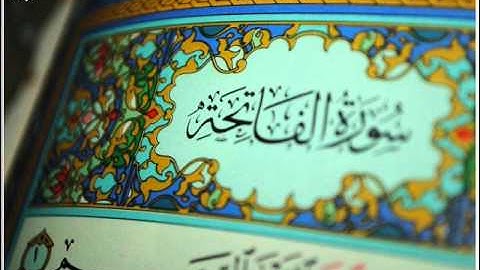 سُورَةُ الْفَاتِحَةِ
١